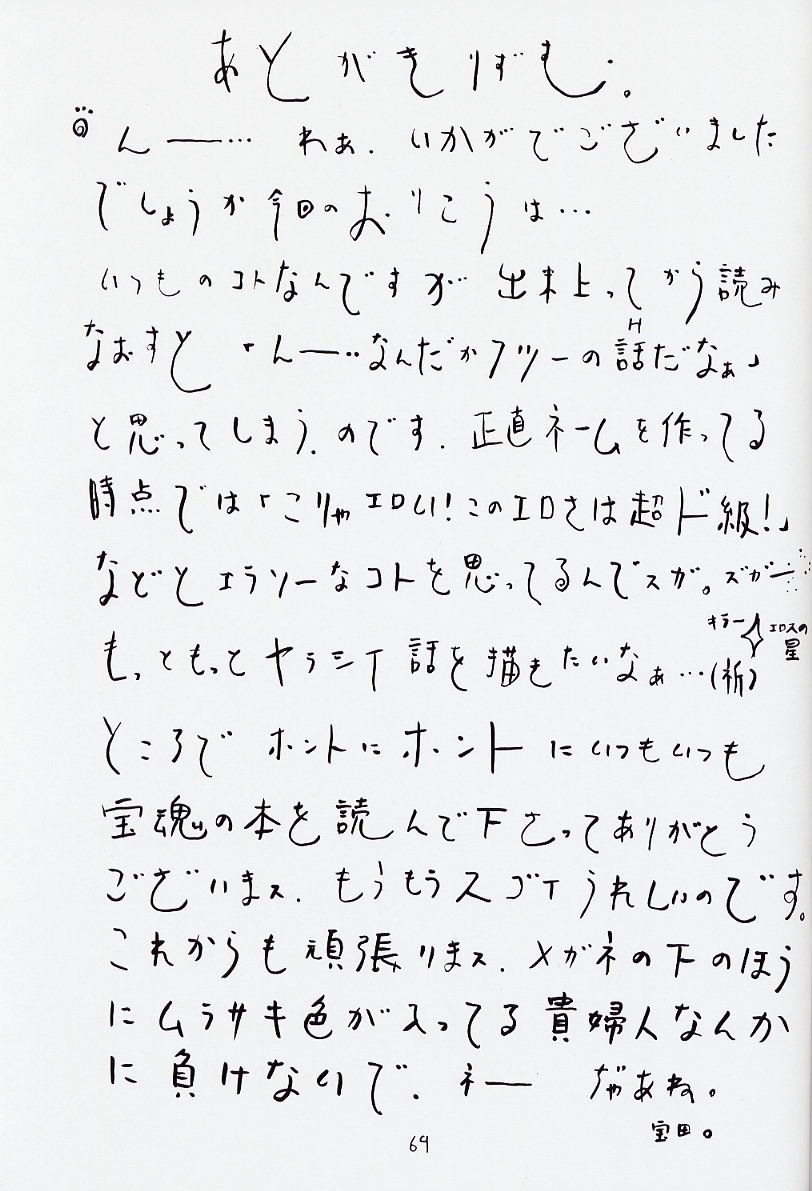 あとがきりずむ。
んー…わぁ.いかがでございました
でしょうか今回のおりこうは…
いつものコトなんですが出来上ってから読み
なおすと「んー…なんだかフツーの話だなぁ」
H
と思ってしまう.のです.正直ネームを作ってる
時点では「こりゃエロい!このエロさは超ド級!」
などとエラソーなコトを思ってるんでスガ。ズガー
もっともっとヤラシイ話を描きたいなぁ…(祈)
キラー エロスの星
ところでホントにホントにいつもいつも
宝魂の本を読んで下さってありがとう
ございまス.もうもうスゴイうれしいのです。
これからも頑張りまス.メガネの下のほう
にムラサキ色が入ってる貴婦人なんか
に負けないで.ネー ぢゃあね。
宝田。
64